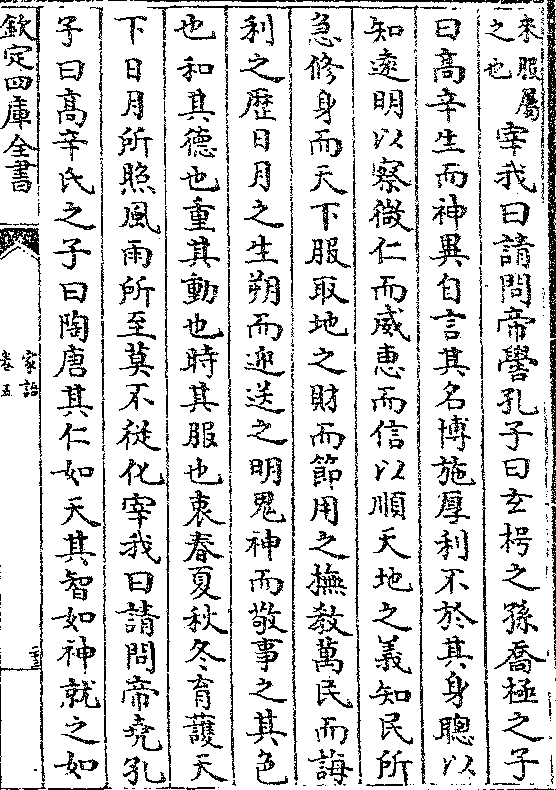 来服屬
之也
宰我曰請問帝嚳孔子曰玄枵之孫喬極之子
曰高辛生而神異自言其名博施厚利不於其身聰以
知遠明以察微仁而威惠而信以順天地之義知民所
急修身而天下服取地之財而節用之撫教萬民而誨
利之歴日月之生朔而迎送之明鬼神而敬事之其色
也和其德也重其動也時其服也衷春夏秋冬育䕶天
下日月所照風雨所至莫不從化宰我曰請問帝堯孔
子曰高辛氏之子曰陶唐其仁如天其智如神就之如
欽定四庫全書
家語
卷五